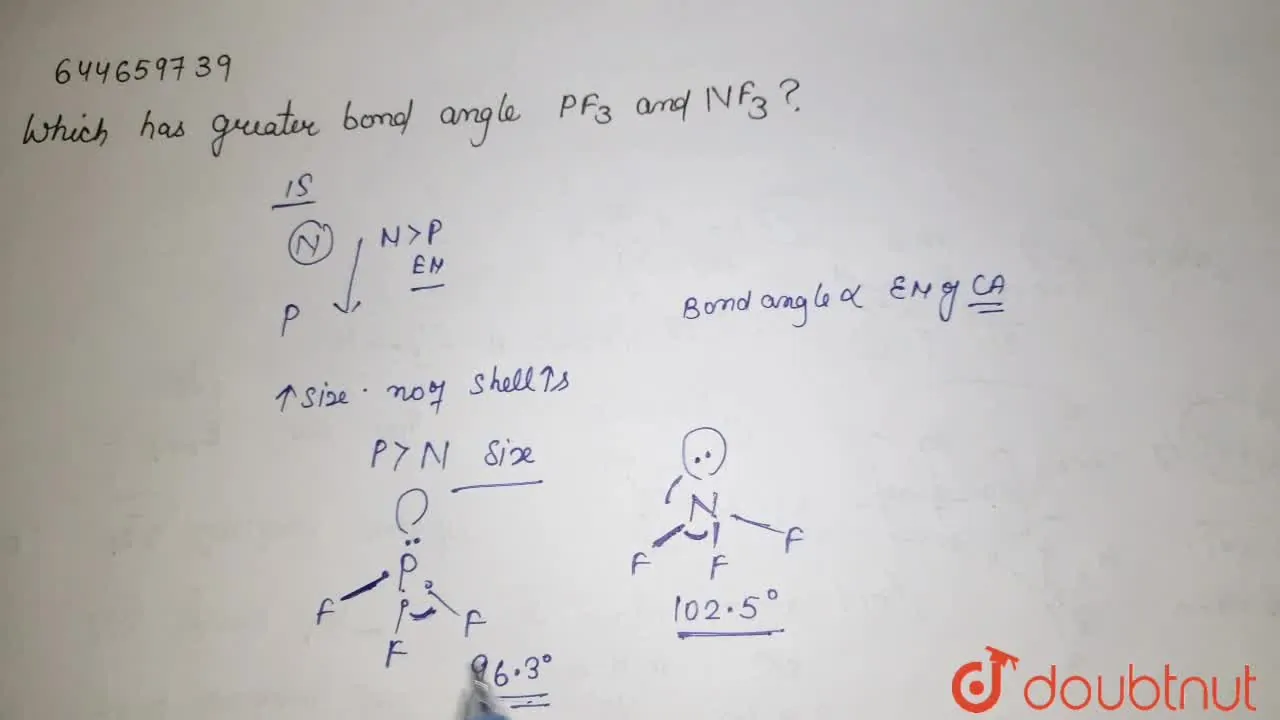 644659739
Which has greater bond angle PF3 and NF3?
1S
N
N>P
EN
P
Bond angle ∝ EN of CA
↑ Size · no of Shell ↑s
P>N Size
P
F
F
F
96.3°
N
F
F
F
102.5°
doubtnut